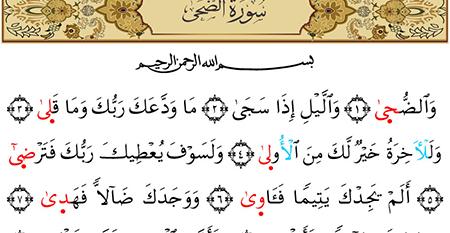 سورة الضحى
بسم الله الرحمن الرحيم
وَٱلضُّحَىٰ ﴿١﴾ وَٱلَّيْلِ إِذَا سَجَىٰ ﴿٢﴾ مَا وَدَّعَكَ رَبُّكَ وَمَا قَلَىٰ ﴿٣﴾
وَلَلْأَخِرَةُ خَيْرٌ لَّكَ مِنَ ٱلْأُولَىٰ ﴿٤﴾ وَلَسَوْفَ يُعْطِيكَ رَبُّكَ فَتَرْضَىٰ
﴿٥﴾ أَلَمْ يَجِدْكَ يَتِيمًا فَـَٔاوَىٰ ﴿٦﴾ وَوَجَدَكَ ضَآلًّا فَهَدَىٰ ﴿٧﴾